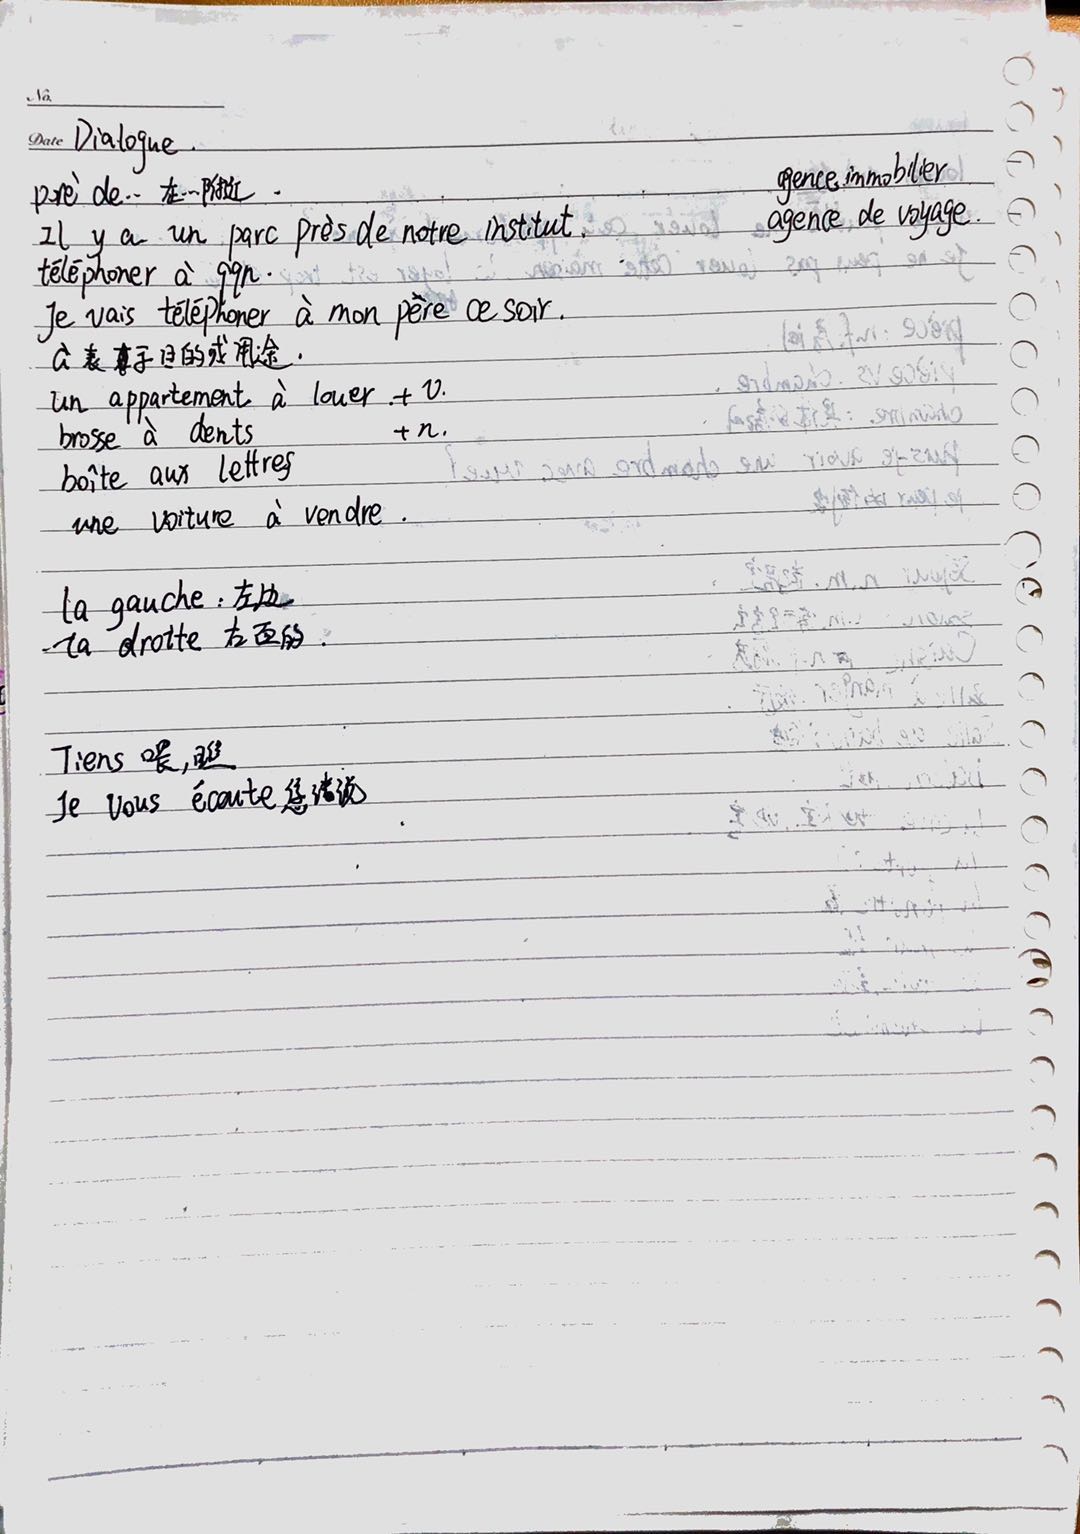 No.
Date Dialogue.
prè de... 在…附近.
agence immobilier
Il y a un parc près de notre institut.
agence de voyage.
téléphoner à qqn.
Je vais téléphoner à mon père ce soir.
à 表 于目的或用途.
un appartement à louer + v.
brosse à dents + n.
boîte aux lettres
une voiture à vendre.
la gauche: 左边
la droite 右面的.
Tiens 喂,
Je vous écoute 您请说